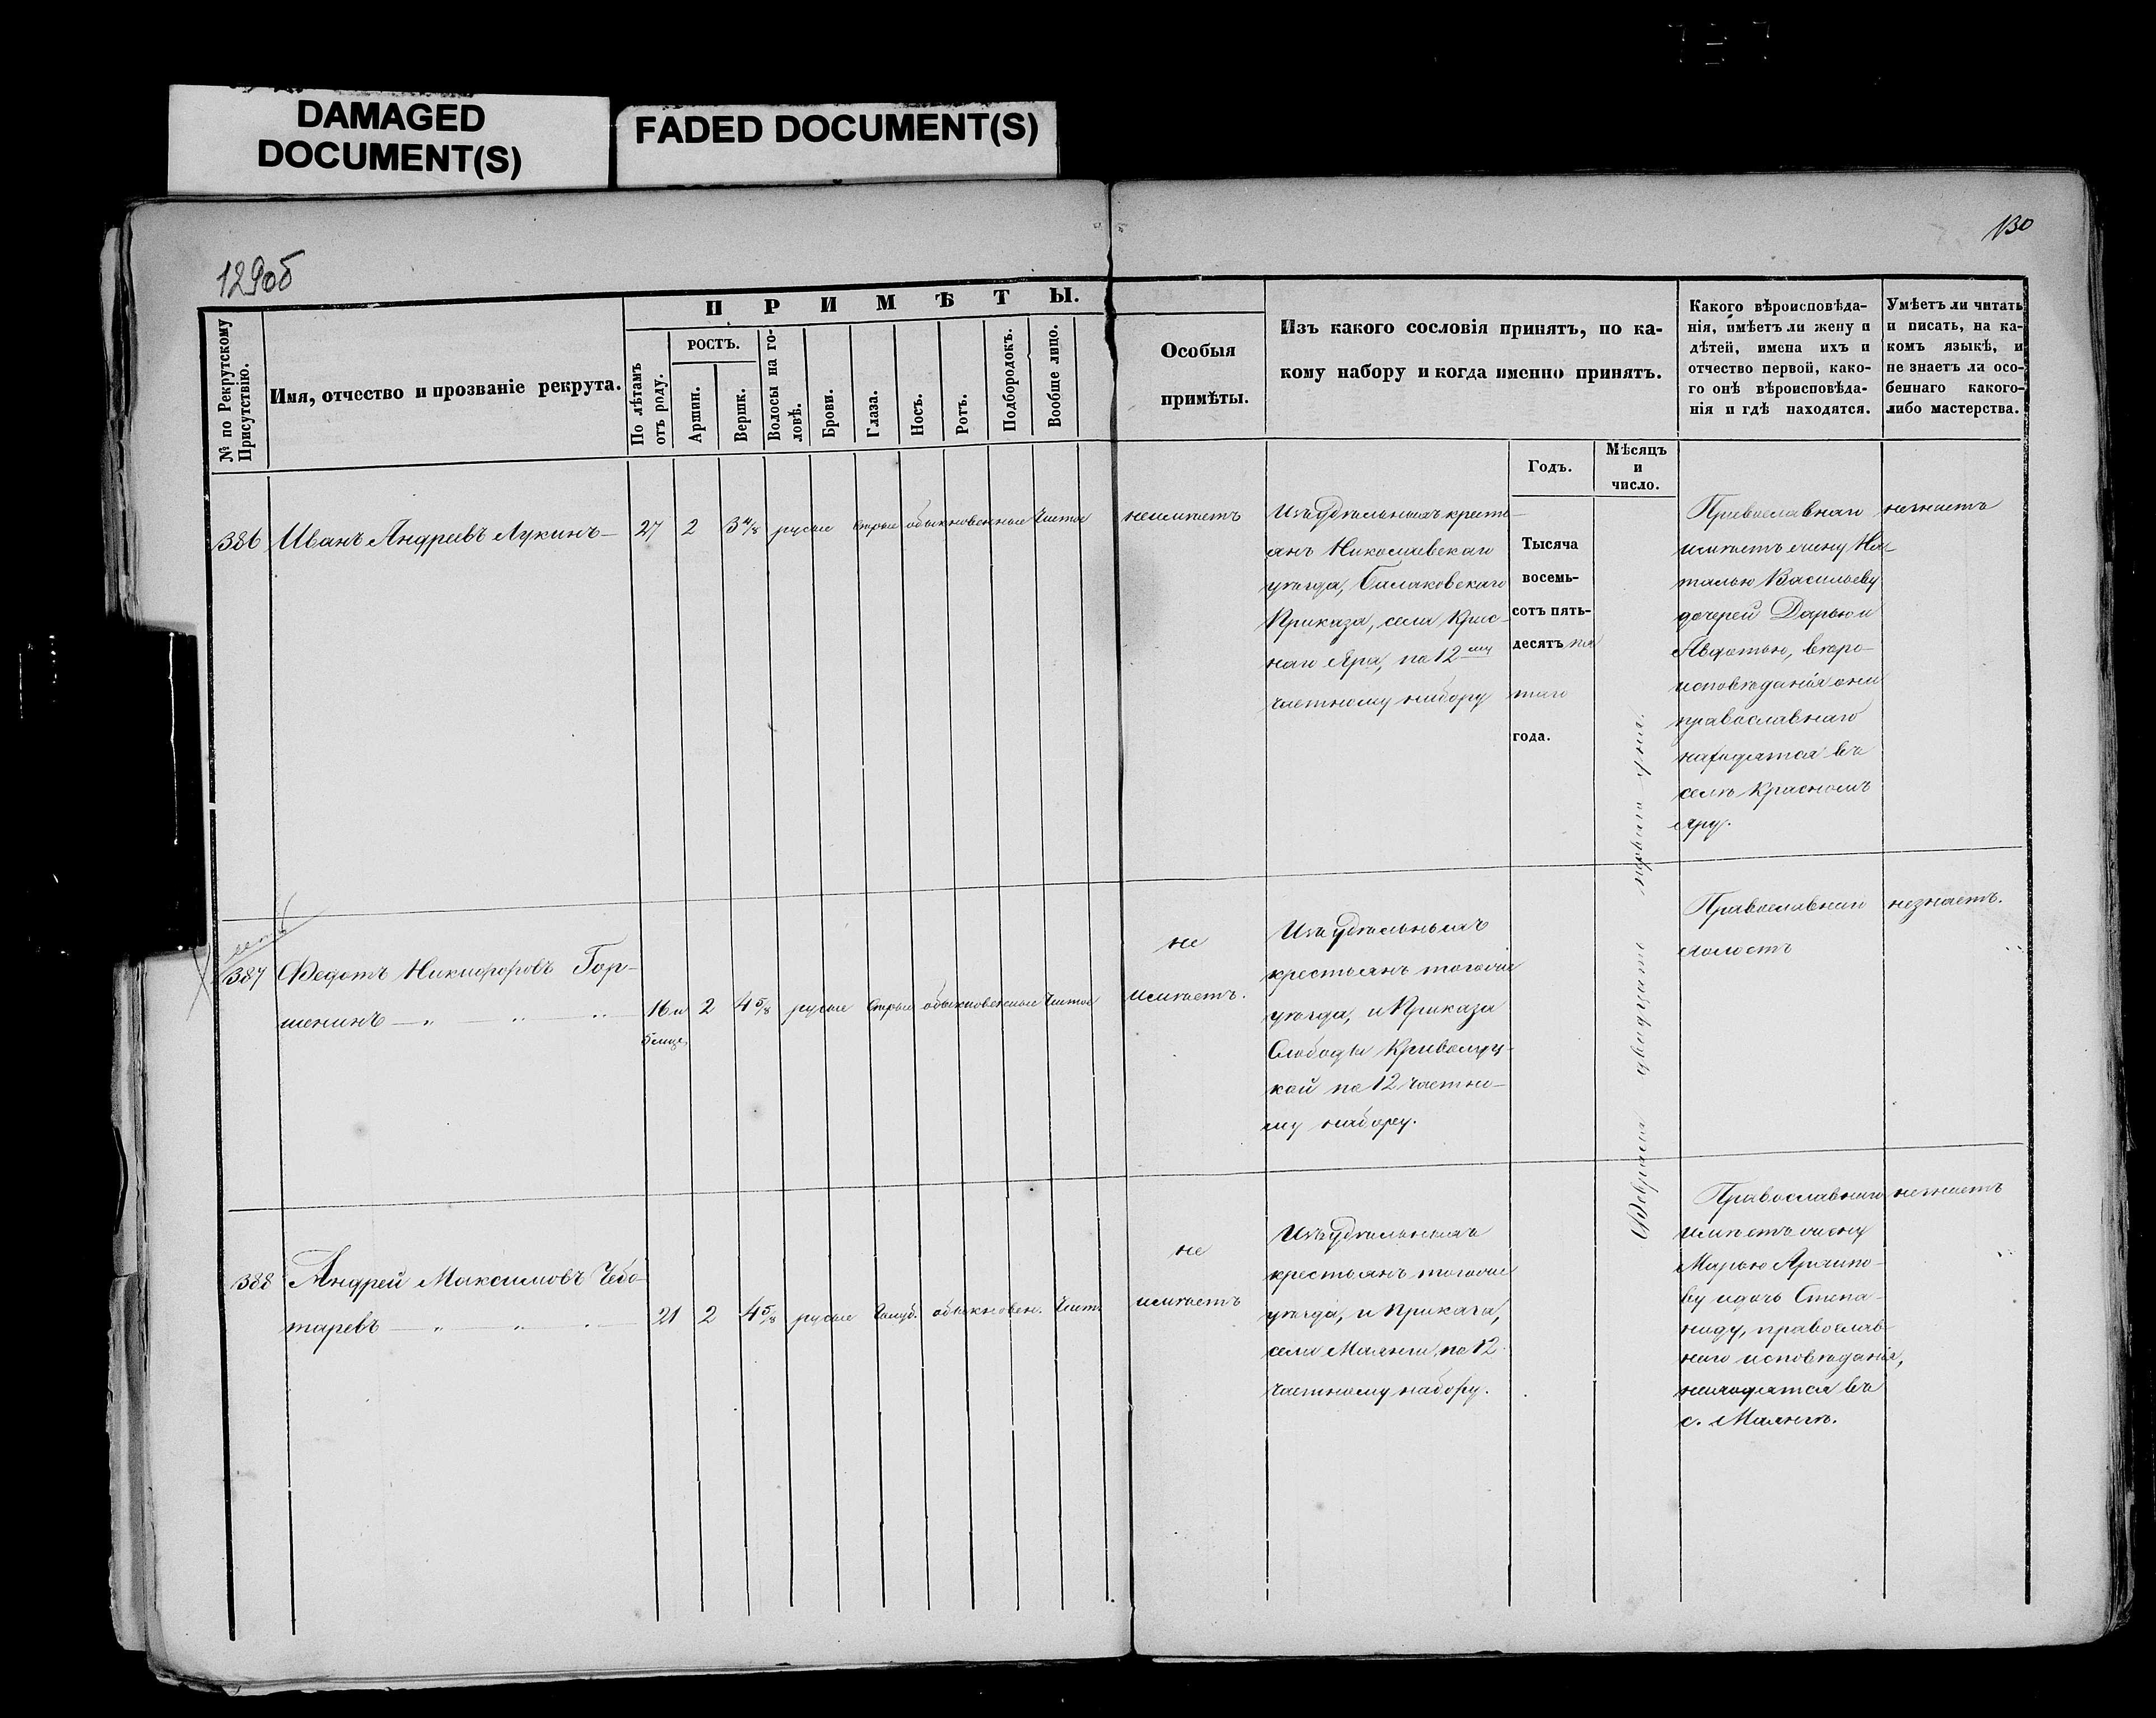 DAMAGED
DOCUMENT(S)
FADED DOCUMENT(S)
129об
130
№ по Рекрутскому
Присутствію.
Имя, отчество и прозваніе рекрута.
ПРИМѢТЫ.
По лѣтамъ
отъ роду.
РОСТЪ.
Аршин.
Вершк.
Волосы на го-
ловѣ.
Брови.
Глаза.
Носъ.
Ротъ.
Подбородокъ.
Вообще лицо.
Особыя
примѣты.
Изъ какого сословія принятъ, по ка-
кому набору и когда именно принятъ.
Какого вѣроисповѣда-
нія, имѣетъ ли жену и
дѣтей, имена ихъ и
отчество первой, како-
го онѣ вѣроисповѣда-
нія и гдѣ находятся.
Умѣетъ ли читать
и писать, на ка-
комъ языкѣ, и
не знаетъ ли осо-
беннаго какого-
либо мастерства.
Годъ.
Мѣсяцъ
и
число.
386 Иванъ Андреевъ Лукинъ 27 2 3 4/8 русые Серые обыкновенные Чистое
неимѣетъ
Изъ удѣльныхъ крест-
янъ Николаевскаго
уѣзда, Балаковскаго
Приказа, села Крас-
наго Яра, по 12му
частному набору
Тысяча
восемь-
сотъ пять-
десятъ пя
таго
года.
Февраля двадцать перваго дня.
Православнаго
имѣетъ жену На-
талью Васильеву
дочерей Дарью и
Авдотью, вѣро-
исповѣданія они
православнаго
находятся въ
селѣ Красномъ
Яру.
незнаетъ
387 Федотъ Никифоровъ Гор-
шенинъ — „ — „ — „ 16 и 2 4 5/8 русые Серые обыкновенные Чистое
5 мѣсе
не
имѣетъ.
Изъ удѣльныхъ
крестьянъ тогоже
уѣзда, и Приказа
Слободы Криволуц-
кой по 12 частно-
му набору.
Православнаго
холостъ
незнаетъ.
388 Андрей Максимовъ Чебо-
таревъ — „ — „ — 21 2 4 5/8 русые Голуб. обыкновен. Чист
не
имѣетъ
Изъ удѣльныхъ
крестьянъ тогоже
уѣзда, и Приказа,
села Маянги, по 12
частному набору.
Православнаго
имѣетъ жену
Марью Архипо-
ву и дочь Степа-
ниду, православ-
наго исповѣданія,
находятся въ
с. Маянгѣ.
незнаетъ